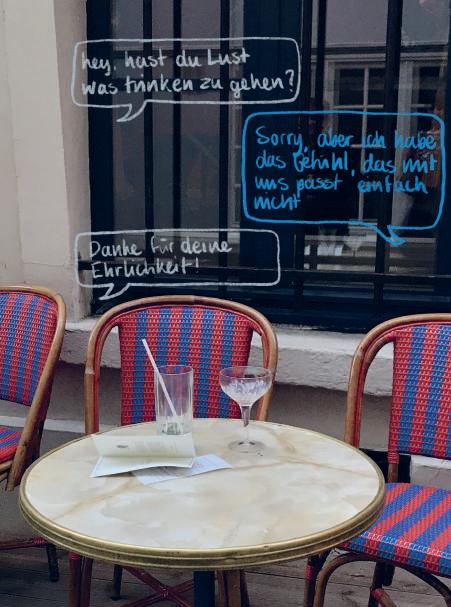 hey, hast du Lust
was trinken zu gehen?
Sorry, aber ich habe
das Gefühl, das mit
uns passt einfach
nicht
Danke für deine
Ehrlichkeit!